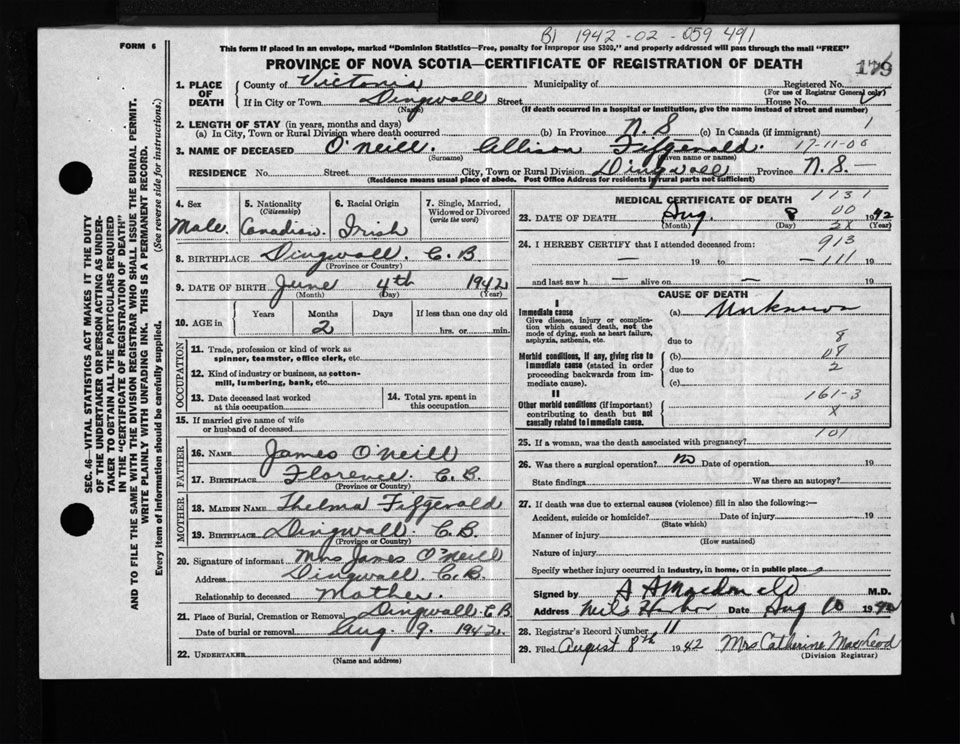 B) 1942-02-059491
FORM 6
This form if placed in an envelope, marked "Dominion Statistics—Free, penalty for improper use $300," and properly addressed will pass through the mail "FREE"
PROVINCE OF NOVA SCOTIA—CERTIFICATE OF REGISTRATION OF DEATH
179
1. PLACE OF DEATH
County of Victoria Municipality of Registered No.
(For use of Registrar General only)
If in City or Town Dingwall Street House No.
(Name) (If death occurred in a hospital or institution, give the name instead of street and number)
2. LENGTH OF STAY (in years, months and days)
(a) In City, Town or Rural Division where death occurred (b) In Province N.S (c) In Canada (if immigrant) 1
3. NAME OF DECEASED O'Neill. Allison Fifgerald. 17-11-00
(Surname) (Given name or names)
RESIDENCE No. Street City, Town or Rural Division Dingwall Province N.S.—
(Residence means usual place of abode. Post Office Address for residents in rural parts not sufficient)
4. Sex
Male.
5. Nationality
(Citizenship)
Canadian.
6. Racial Origin
Irish
7. Single, Married, Widowed or Divorced
(write the word)
8. BIRTHPLACE Dingwall. C.B.
(Province or Country)
9. DATE OF BIRTH June 4th 1942
(Month) (Day) (Year)
10. AGE in
Years Months Days If less than one day old
2 hrs. or min.
OCCUPATION
11. Trade, profession or kind of work as spinner, teamster, office clerk, etc.
12. Kind of industry or business, as cotton-mill, lumbering, bank, etc.
13. Date deceased last worked at this occupation
14. Total yrs. spent in this occupation
15. If married give name of wife or husband of deceased
FATHER
16. NAME James O'neill
17. BIRTHPLACE Florence C.B.
(Province or Country)
MOTHER
18. MAIDEN NAME Thelma Fifgerald
19. BIRTHPLACE Dingwall. C.B.
(Province or Country)
20. Signature of informant Mrs James O'Neill
Address Dingwall. C.B
Relationship to deceased Mother.
21. Place of Burial, Cremation or Removal Dingwall C B
Date of burial or removal Aug. 9. 1942.
22. UNDERTAKER
(Name and address)
MEDICAL CERTIFICATE OF DEATH 1131
23. DATE OF DEATH Aug. 8 00 1942
(Month) (Day) 2X (Year)
24. I HEREBY CERTIFY that I attended deceased from: 913
— 19 to — 111 19
and last saw h alive on — 19
CAUSE OF DEATH
I
Immediate cause
Give disease, injury or complication which caused death, not the mode of dying, such as heart failure, asphyxia, asthenia, etc.
(a) Unknown
due to 8
Morbid conditions, if any, giving rise to immediate cause (stated in order proceeding backwards from immediate cause).
(b) 08
due to 2
(c)
II
Other morbid conditions (if important) contributing to death but not causally related to immediate cause.
161-3
X
101
25. If a woman, was the death associated with pregnancy?
26. Was there a surgical operation? no Date of operation 19
State findings Was there an autopsy?
27. If death was due to external causes (violence) fill in also the following:—
Accident, suicide or homicide? Date of injury 19
(State which)
Manner of injury
(How sustained)
Nature of injury
Specify whether injury occurred in industry, in home, or in public place
Signed by A A Macdonald M.D.
Address Neils Harbor Date Aug 10 1942
28. Registrar's Record Number 11
29. Filed August 8th 1942 Mrs Catherine MacLeod
(Division Registrar)
SEC. 46—VITAL STATISTICS ACT MAKES IT THE DUTY
OF THE UNDERTAKER OR PERSON ACTING AS UNDER-
TAKER TO OBTAIN ALL THE PARTICULARS REQUIRED
IN THE "CERTIFICATE OF REGISTRATION OF DEATH"
AND TO FILE THE SAME WITH THE DIVISION REGISTRAR WHO SHALL ISSUE THE BURIAL PERMIT.
WRITE PLAINLY WITH UNFADING INK. THIS IS A PERMANENT RECORD.
Every item of information should be carefully supplied. (See reverse side for instructions.)